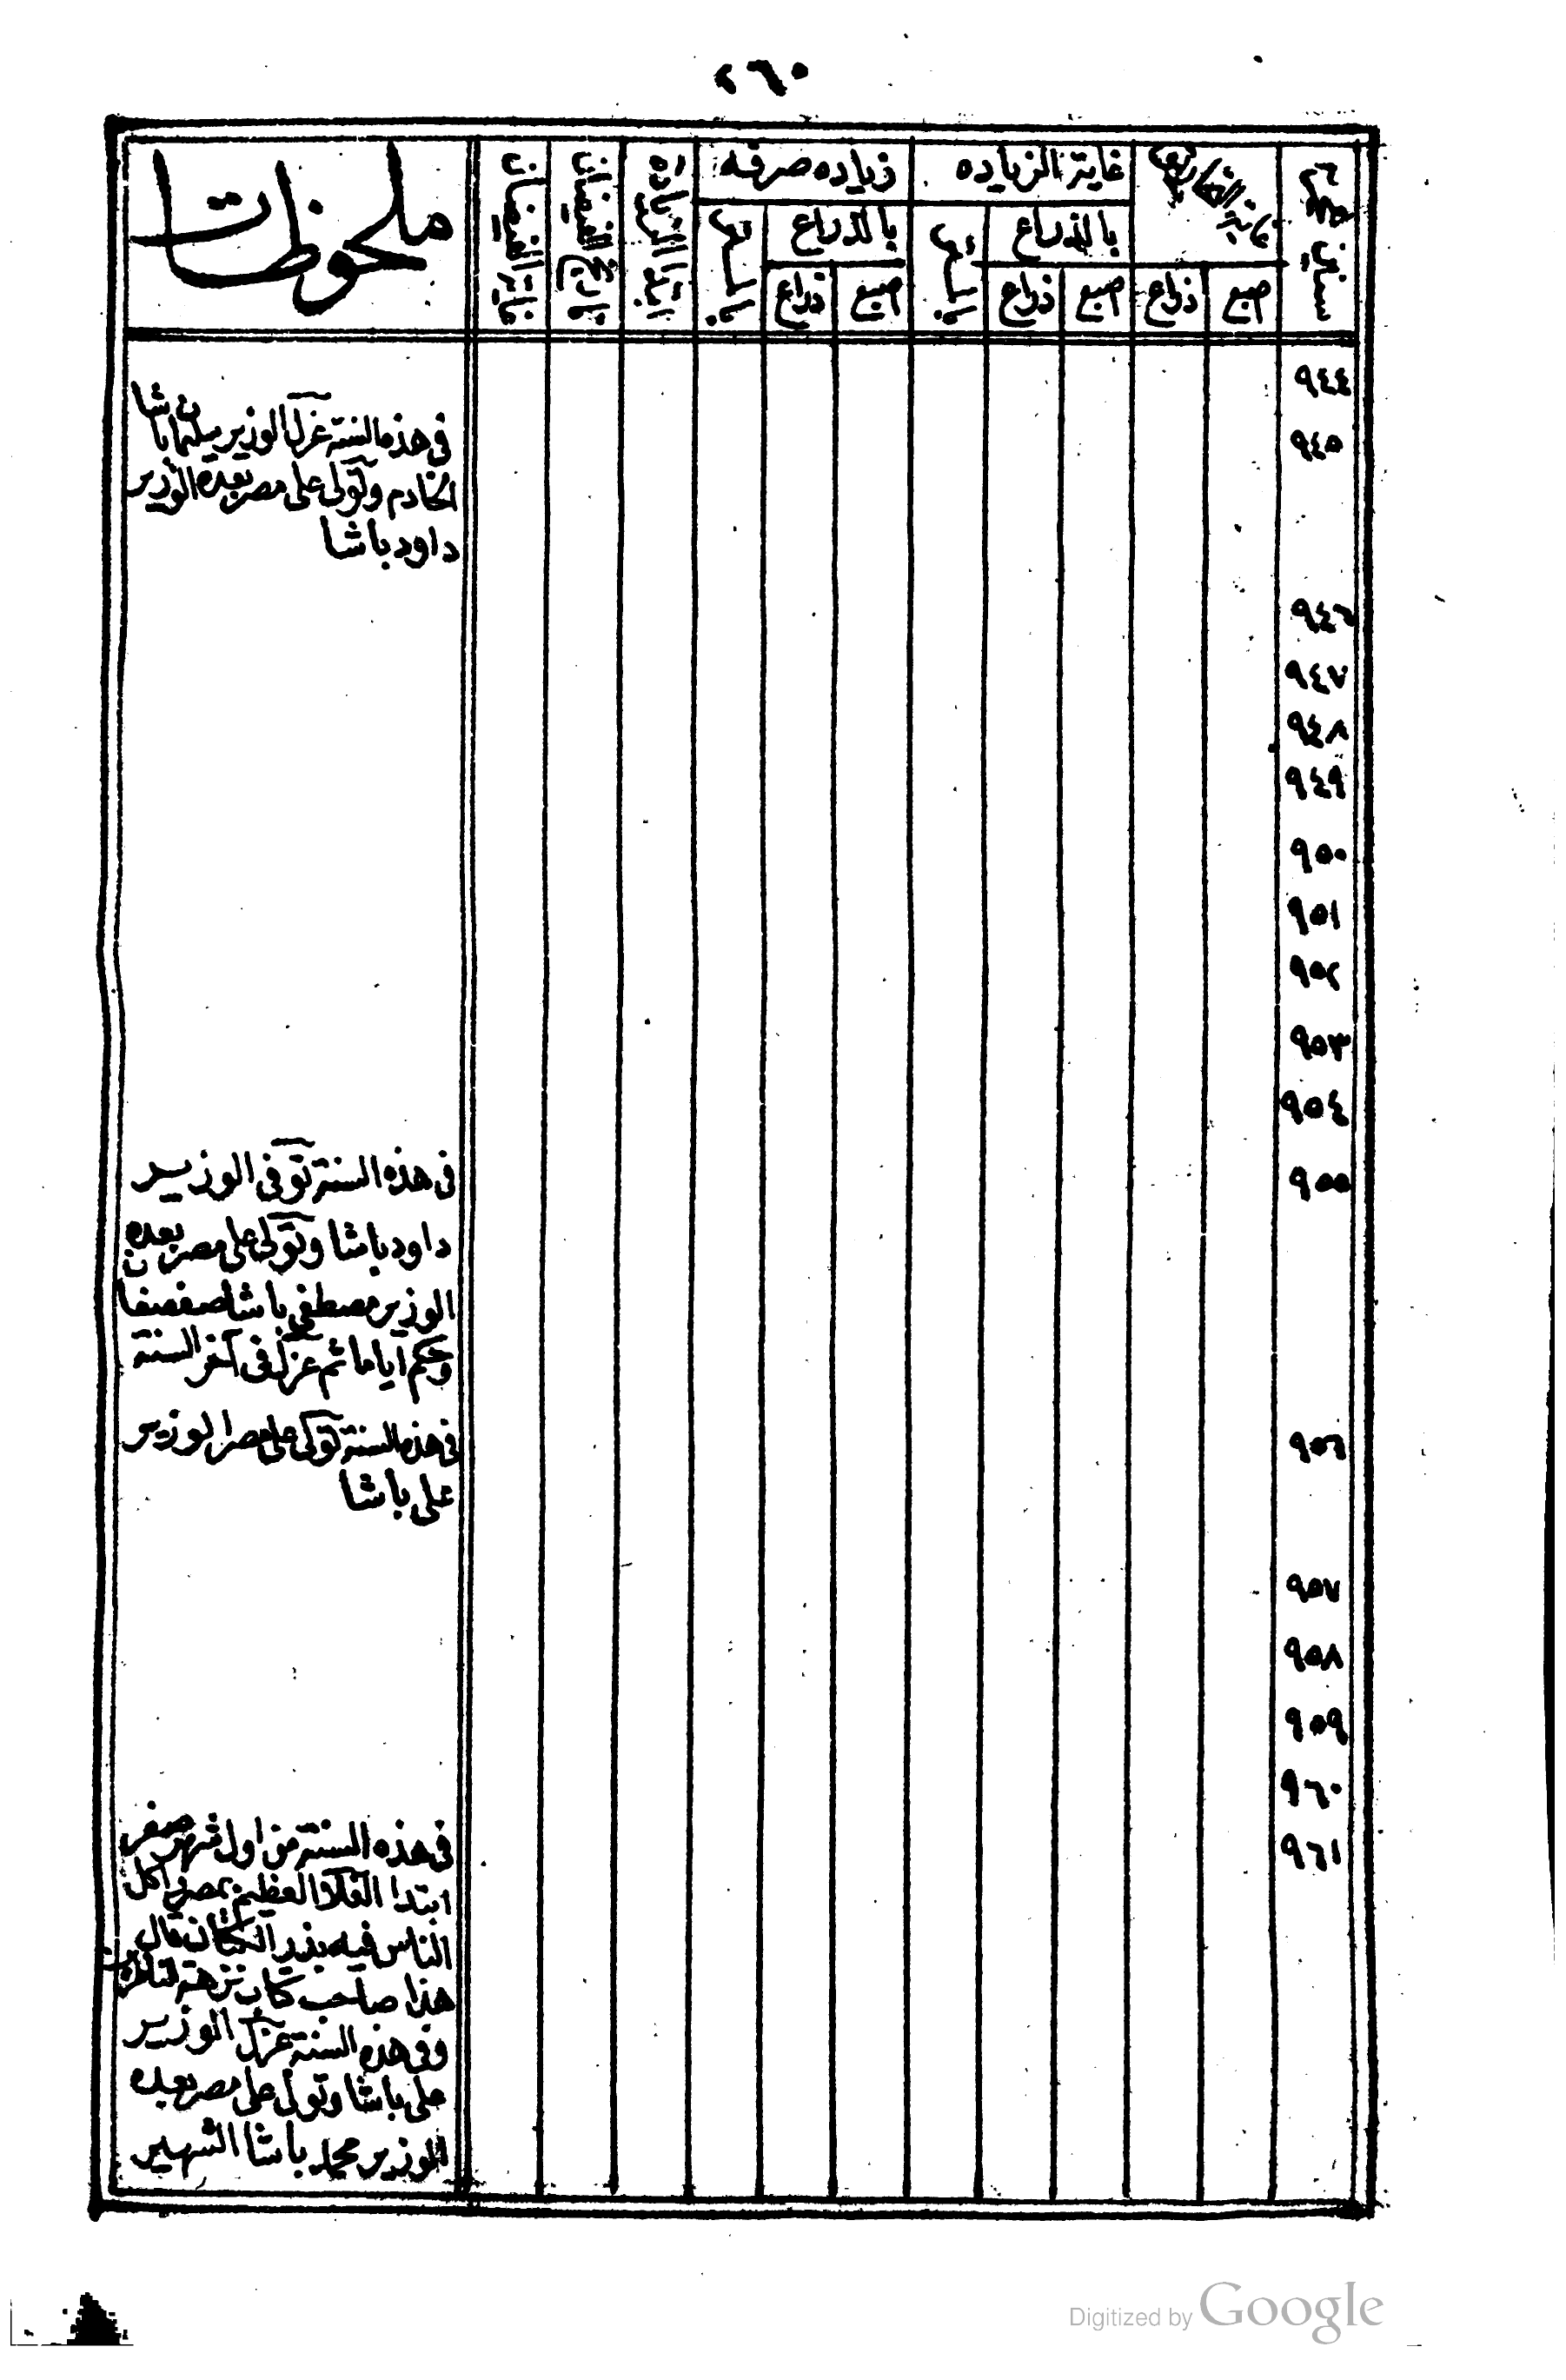 ٢٦٠
سنين هجرية
غاية الزياده
زياده صرفه
ملحوظات
بالذراع
بالذراع
اصبع
ذراع
اصبع
ذراع
اصبع
ذراع
ابتدا الزياده
تاريخ الفيضان
غاية الفيضان
٩٤٤
٩٤٥
فى هذه السنة عزل الوزير سليمان باشا
الخادم وتولى على مصر بعده الوزير
داود باشا
٩٤٦
٩٤٧
٩٤٨
٩٤٩
٩٥٠
٩٥١
٩٥٢
٩٥٣
٩٥٤
٩٥٥
فى هذه السنة توفى الوزير
داود باشا وتولى على مصر بعده
الوزير مصطفى باشا صفصفان
وحكم أياما ثم عزل فى آخر السنة
٩٥٦
فى هذه السنة تولى على مصر الوزير
على باشا
٩٥٧
٩٥٨
٩٥٩
٩٦٠
٩٦١
فى هذه السنة من اول شهر صفر
ابتدا الغلا العظيم بمصر اكل
الناس فيه بذر الكتان قال
هذا صاحب كتاب نزهة الناظرين
وفى هذه السنة عزل الوزير
على باشا وتولى على مصر بعده
الوزير محمد باشا الشهير
Digitized by Google